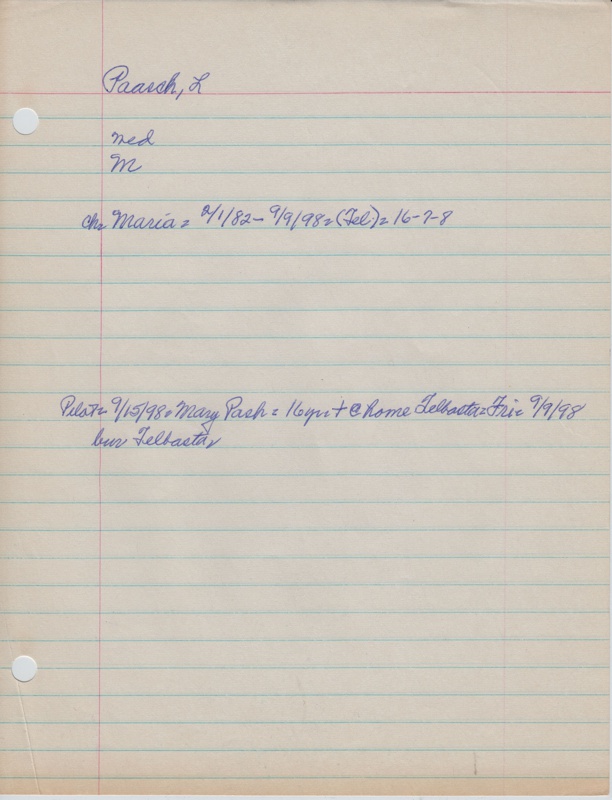 Paasch, L
med
M
ch= Maria = 2/1/82 - 9/9/98 = (Tel) = 16-7-8
Pilot = 9/15/98 = Mary Pash = 16 yr = + @ home Telbasta = Fri = 9/9/98
bur Telbasta